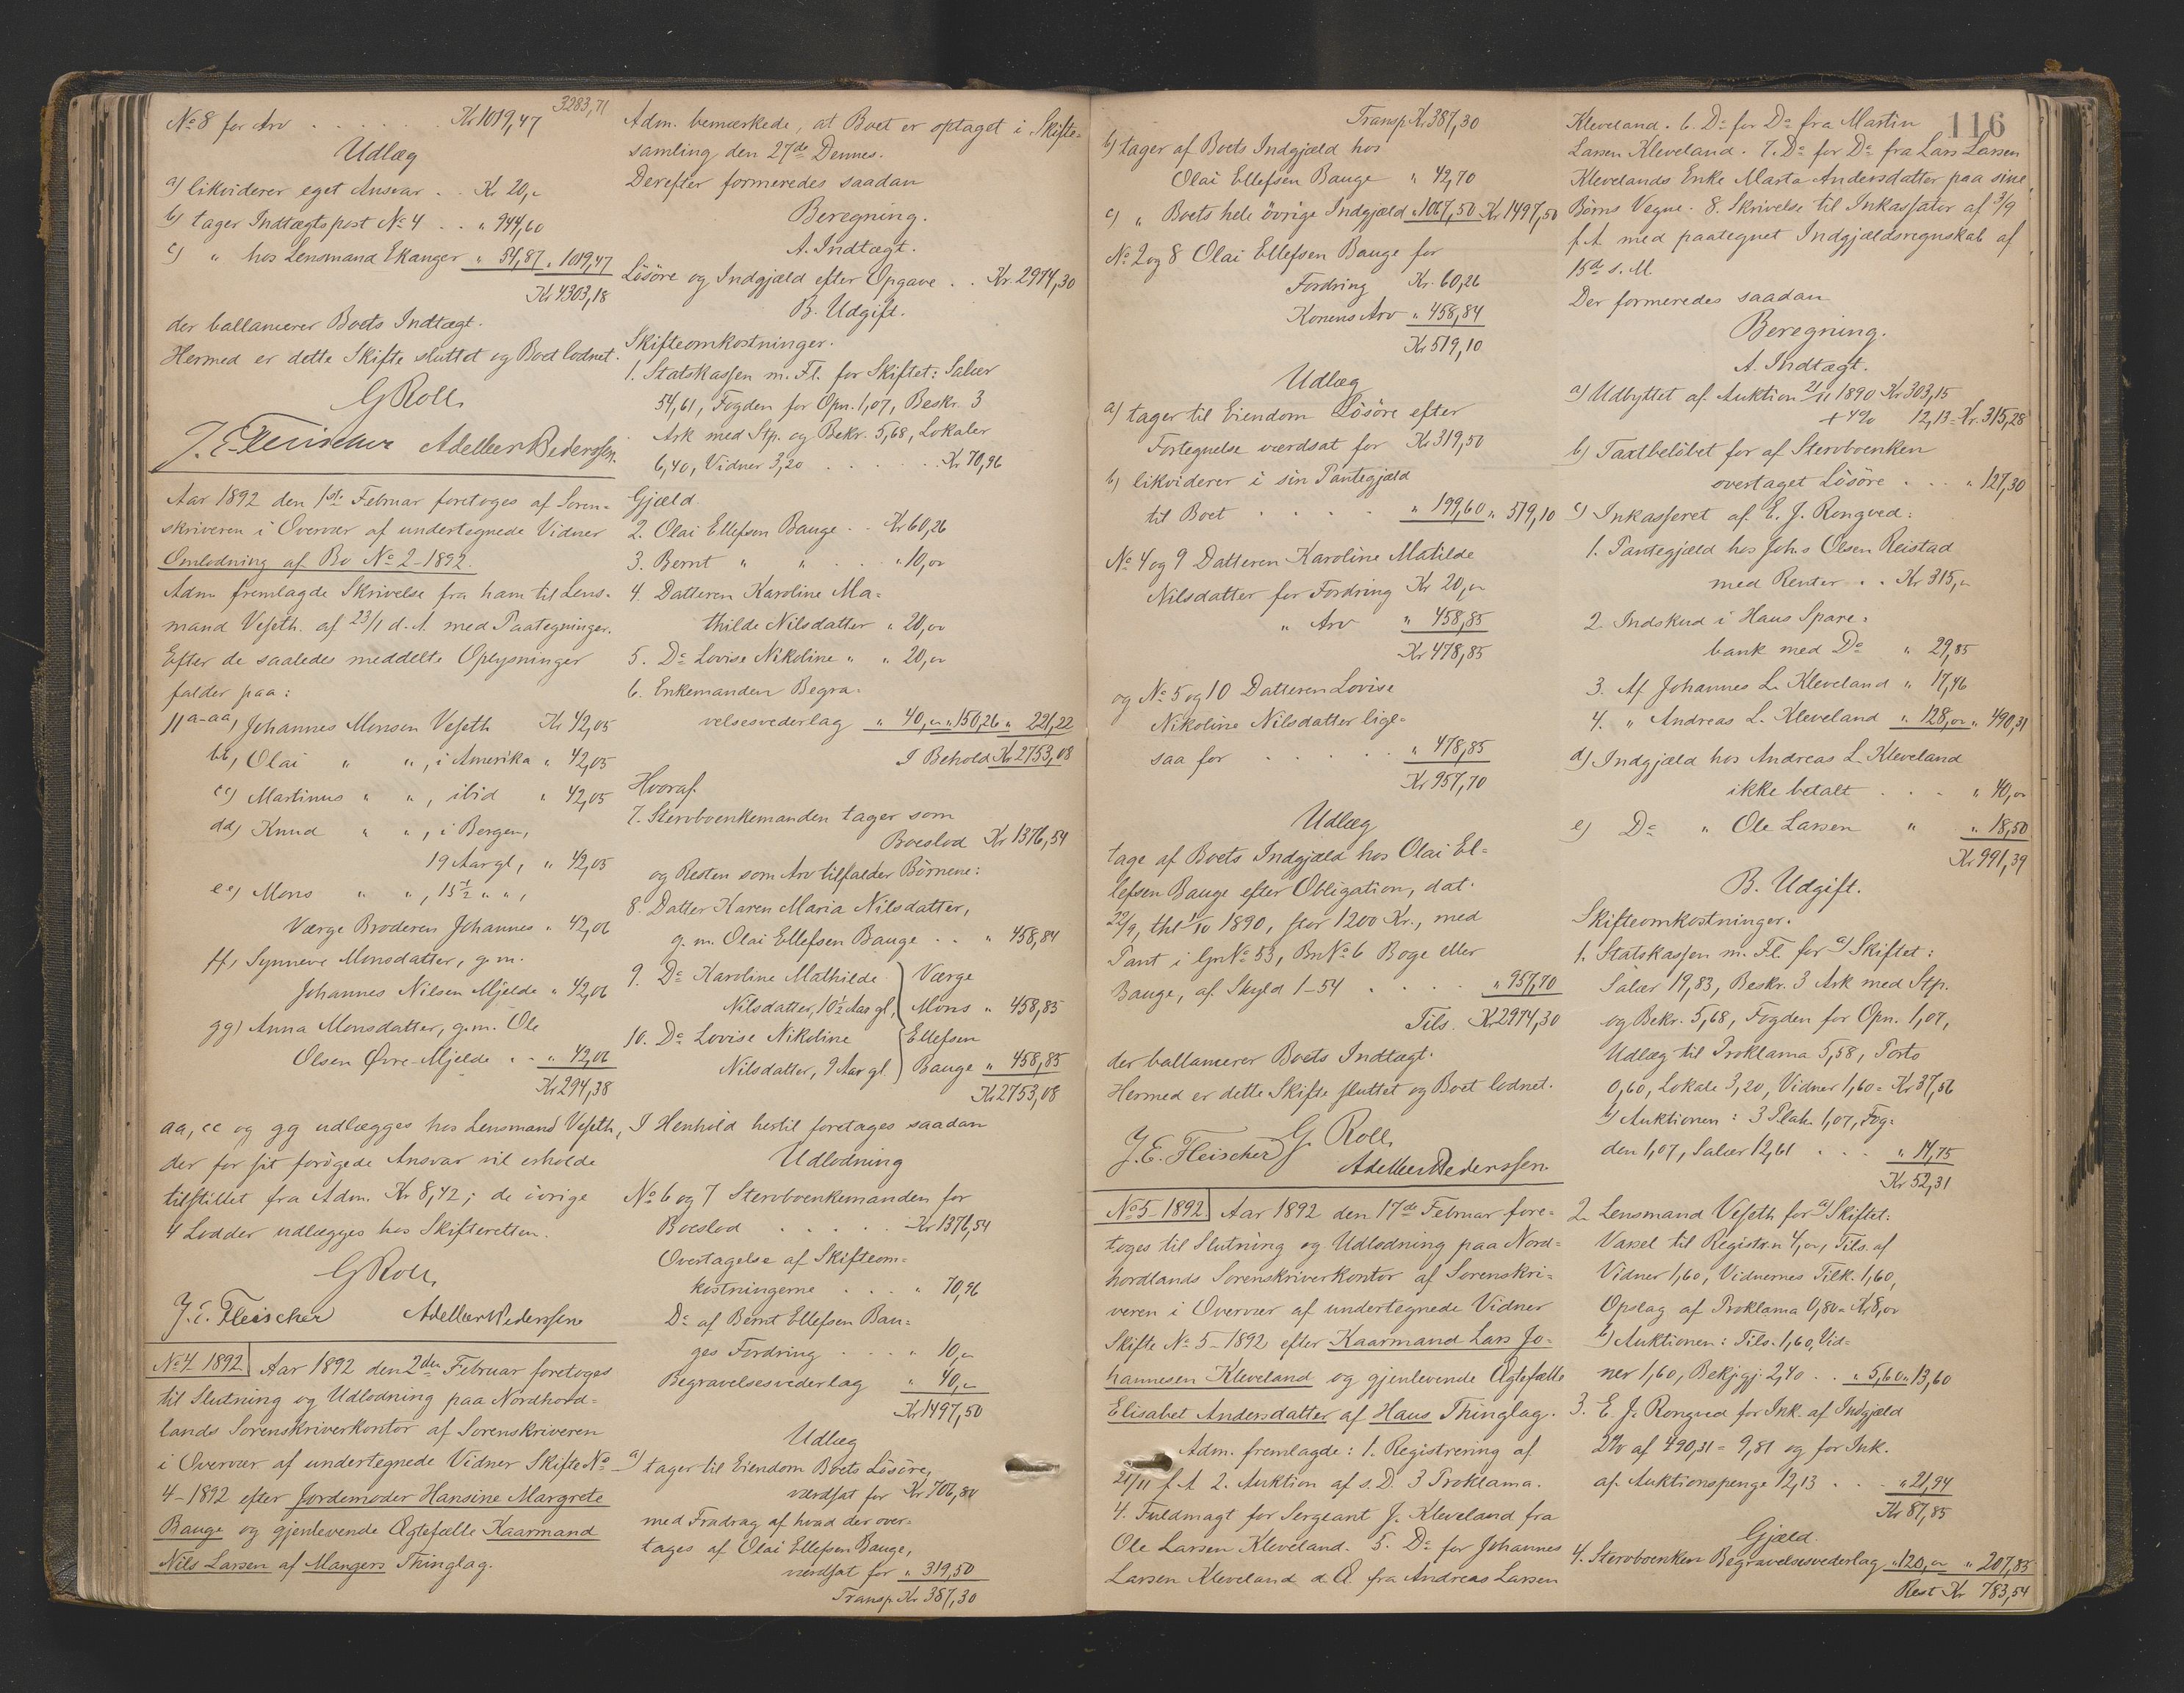 3283,71
No 8 for Arv . . . . . . Kr 1019,47
Udlæg
a) likviderer eget Ansvar . . Kr 20,"
b) tager Indtægtspost No 4 . . " 944,60
c) " hos Lensmand Ekanger " 54,87 " 1019,47
Kr 4303,18
der ballancerer Boets Indtægt.
Hermed er dette Skifte sluttet og Boet lodnet.
G Roll
J. E. Fleischer Adelbert Pederssen
Aar 1892 den 1ste Februar foretoges af Soren-
skriveren i Overvær af undertegnede Vidner
Omlodning af Bo No 2-1892.
Adm fremlagde Skrivelse fra ham til Lens-
mand Veseth af 23/1 d. A. med Paategninger.
Efter de saaledes meddelte Oplysninger
falder paa:
11 a-aa, Johannes Monsen Veseth Kr 42,05
bb, Olai " ", i Amerika " 42,05
cc) Martinus " ", ibid " 42,05
dd) Knud " ", i Bergen,
19 Aar gl, " 42,05
ee) Mons " ", 15½ " ",
Værge Broderen Johannes " 42,06
ff, Synneve Monsdatter, g. m.
Johannes Nilsen Mjelde " 42,06
gg) Anna Monsdatter, g. m. Ole
Olsen Øvre-Mjelde . . " 42,06
Kr 294,38
aa, cc og gg udlægges hos Lensmand Veseth,
der for sit forøgede Ansvar vil erholde
tilstillet fra Adm. Kr 8,42; de övrige
4 Lodder udlægges hos Skifteretten.
G Roll
J. E. Fleischer Adelbert Pederssen
No 4 1892 Aar 1892 den 2den Februar foretoges
til Slutning og Udlodning paa Nordhord-
lands Sorenskriverkontor af Sorenskriveren
i Overvær af undertegnede Vidner Skifte No
4-1892 efter Jordemoder Hansine Margrete
Bauge og gjenlevende Ægtefælle Kaarmand
Nils Larsen af Mangers Thinglag.
Adm. bemærkede, at Boet er optaget i Skifte-
samling den 27de Dennes.
Derefter formeredes saadan
Beregning.
A. Indtægt.
Lösöre og Indgjæld efter Opgave . . Kr. 2974,30
B. Udgift.
Skifteomkostninger.
1. Statskassen m. Fl. for Skiftet: Salær
54,61, Fogden for Opn. 1,07, Beskr. 3
Ark med Stp. og Bekr. 5,68, Lokaler
6,40, Vidner 3,20 . . . . . . Kr 70,96
Gjæld
2. Olai Ellefsen Bauge . . Kr 60,26
3. Bernt " " . . " 10,00
4. Datteren Karoline Ma-
thilde Nilsdatter " 20,00
5. Do Lovise Nikoline " " 20,00
6. Enkemanden Begra-
velsesvederlag " 40,00 " 150,26 " 221,22
I Behold Kr 2753,08
Hvoraf
7. Stervboenkemanden tager som
Boeslod Kr 1376,54
og Resten som Arv tilfalder Børnene:
8. Datter Karen Maria Nilsdatter,
g. m. Olai Ellefsen Bauge . . " 458,84
9. Do Karoline Mathilde Værge
Nilsdatter, 10½ Aar gl, Mons " 458,85
10. Do Lovise Nikoline Ellefsen
Nilsdatter, 9 Aar gl. Bauge " 458,85
Kr 2753,08
I Henhold hertil foretages saadan
Udlodning
No 6 og 7 Stervboenkemanden for
Boeslod . . . . . Kr 1376,54
Overtagelse af Skifteom-
kostningerne . . . . " 70,96
Do af Bernt Ellefsen Bau-
ges Fordring . . . . " 10,"
Begravelsesvederlag " 40,"
Kr 1497,50
Udlæg
a) tager til Eiendom Boets Lösöre,
værdsat for Kr 706,80
med Fradrag af hvad der over-
tages af Olai Ellefsen Bauge,
værdsat for " 319,50
Transp. Kr 387,30
Transp Kr 387,30
b) tager af Boets Indgjæld hos
Olai Ellefsen Bauge " 42,70
c) " Boets hele övrige Indgjæld " 1067,50 Kr 1497,50
No 2 og 8 Olai Ellefsen Bauge for
Fordring Kr. 60,26
Konens Arv " 458,84
Kr 519,10
Udlæg
a) tager til Eiendom Lösöre efter
Fortegnelse værdsat for Kr 319,50
b) likviderer i sin Pantegjæld
til Boet . . . . " 199,60 " 519,10
No 4 og 9 Datteren Karoline Matilde
Nilsdatter for Fordring Kr 20,00
" Arv " 458,85
Kr 478,85
og No 5 og 10 Datteren Lovise
Nikoline Nilsdatter lige-
saa for . . . . . " 478,85
Kr 957,70
Udlæg
tage af Boets Indgjæld hos Olai El-
lefsen Bauge efter Obligation, dat.
22/9, thl 1/10 1890, stor 1200 Kr., med
Pant i Gr No 53, Br No 6 Boge eller
Bauge, af Skyld 1-54 . . . . " 957,70
Tils. Kr 2974,30
der ballancerer Boets Indtægt.
Hermed er dette Skifte sluttet og Boet lodnet.
G. Roll
J. E. Fleischer Adelbert Pederssen
No 5-1892 Aar 1892 den 17de Februar fore-
toges til Slutning og Udlodning paa Nord-
hordlands Sorenskriverkontor af Sorenskri-
veren i Overvær af undertegnede Vidner
Skifte No 5-1892 efter Kaarmand Lars Jo-
hannesen Kleveland og gjenlevende Ægtefælle
Elisabet Andersdatter af Haus Thinglag.
Adm. fremlagde: 1. Registrering af
21/11 f. A 2. Auktion af s. D. 3 Proklama.
4. Fuldmagt for Sergeant J. Kleveland fra
Ole Larsen Kleveland. 5. Do for Johannes
Larsen Kleveland d. Æ. fra Andreas Larsen
116
Kleveland. 6. Do for Do fra Martin
Larsen Kleveland. 7. Do for Do fra Lars Larsen
Klevelands Enke Marta Andersdatter paa sine
Börns Vegne. 8. Skrivelse til Inkassator af 3/9
f. A. med paategnet Indgjældsregnskab af
15de s. M
Der formeredes saadan
Beregning.
A. Indtægt.
a) Udbyttet af Auktion 21/11 1890 Kr 303,15
+ 4% 12,13 = Kr. 315,28
b) Taxtbelöbet for af Stervboenken
overtaget Lösöre . . . " 127,30
c) Inkasseret af E. J. Rongved:
1. Pantegjæld hos Johs Olsen Reistad
med Renter . . Kr 315,"
2. Indskud i Haus Spare-
bank med Do " 29,85
3. Af Johannes L. Kleveland " 17,46
4. " Andreas L. Kleveland " 128,00 " 490,31
d) Indgjæld hos Andreas L. Kleveland
ikke betalt . . . " 40,00
e) Do " Ole Larsen " " 18,50
Kr 991,39
B. Udgift.
Skifteomkostninger.
1. Statskassen m. Fl. for a) Skiftet:
Salær 19,83, Beskr. 3 Ark med Stp.
og Bekr. 5,68, Fogden for Opn. 1,07,
Udlæg til Proklama 5,58, Porto
0,60, Lokale 3,20, Vidner 1,60 = Kr 37,56
b) Auktionen: 3 Plak. 1,07, Fog-
den 1,07, Salær 12,61 . . . " 14,75
Kr 52,31
2. Lensmand Veseth for a) Skiftet:
Varsel til Registr.n 4,00, Tils. af
Vidner 1,60, Vidnernes Tilk. 1,60,
Opslag af Proklama 0,80 = Kr 8,00
b) Auktionen: Tils. 1,60, Vid-
ner 1,60, Bekjgj. 2,40 . . " 5,60 " 13,60
3. E. J. Rongved for Ink. af Indgjæld
2% af 490,31 = 9,81 og for Ink.
af Auktionspenge 12,13 . . . " 21,94
Kr 87,85
Gjæld.
4. Stervboenken Begravelsesvederlag " 120,00 " 207,85
Rest Kr 783,54